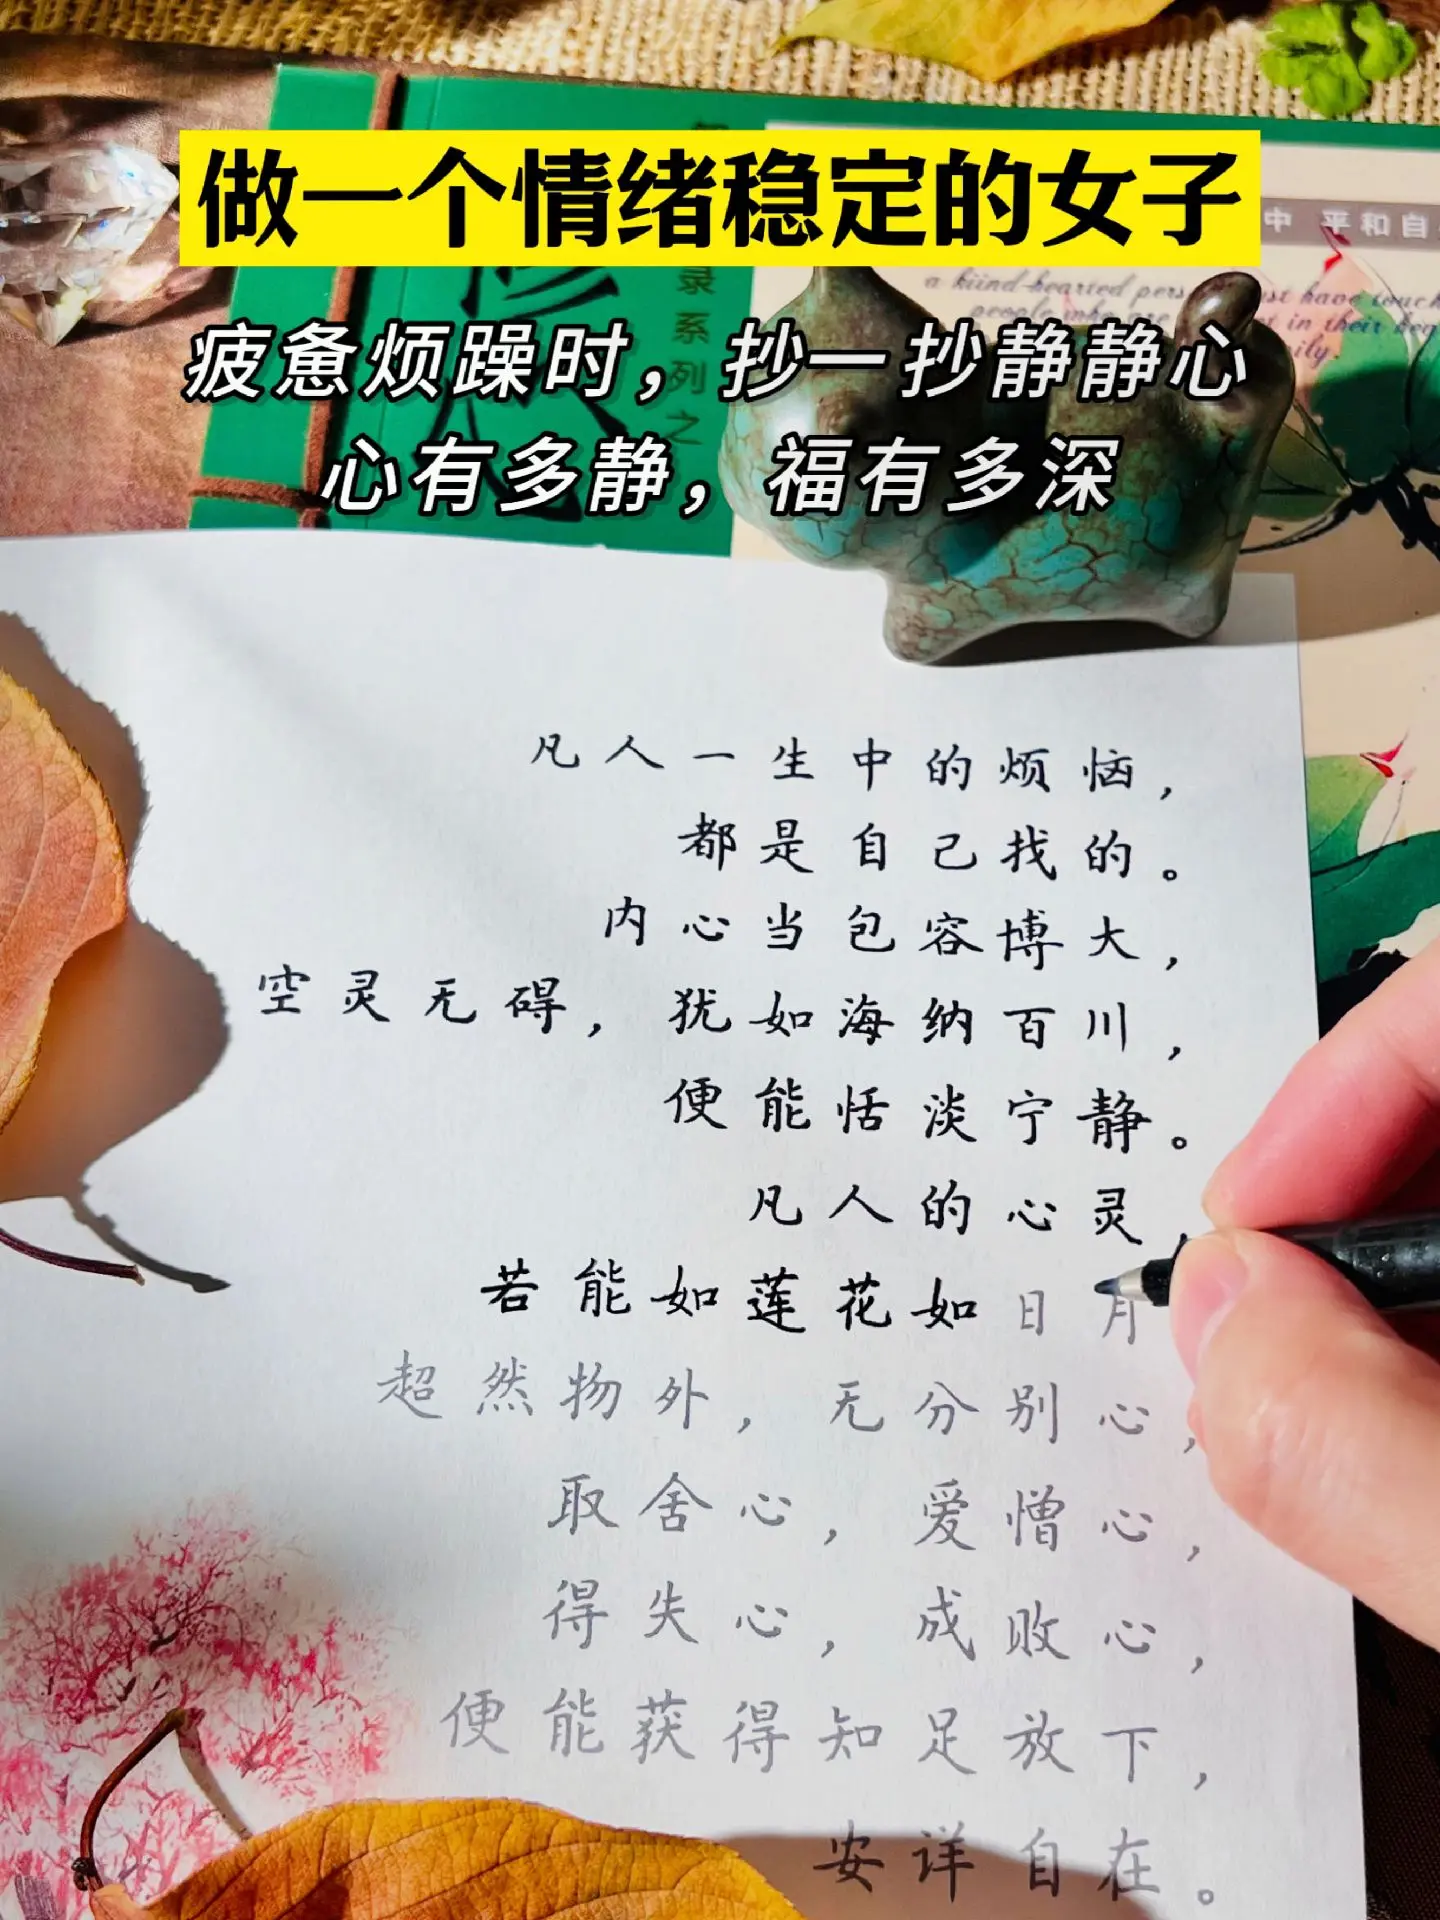 做一个情绪稳定的女子
疲惫烦躁时，抄一抄静静心
心有多静，福有多深
录系列之
中 平和自
a kiind-hearted pers
ust have touch
people who are
t in their
ily.
凡人一生中的烦恼，
都是自己找的。
内心当包容博大，
空灵无碍，犹如海纳百川，
便能恬淡宁静。
凡人的心灵，
若能如莲花如日月
超然物外，无分别心，
取舍心，爱憎心，
得失心，成败心，
便能获得知足放下，
安详自在。